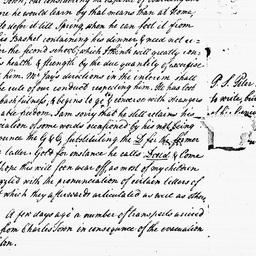 he would learn by that means than at Home,
defer it till Spring when he can foot it from
his Basket containing his dinner, & need not re-
the second school, which I think will greatly con-
his health & strength by the due quantity of exercise
him. Mr. Jay's directions in the interim shall
be rule of our conduct respecting him. He has lost
bashfulness, & begins to go & converse with strangers
able freedom. I am sorry that he still retains his
ciation of some words occasioned by his not being
the C & G & substituting the D for the former
latter. Gold for instance he calls Dold & Come
I hope this will soon wear off, as most of my children
with the pronunciation of certain letters of
which they afterwards articulated as well as others.
A few days ago a number of transports arived
from Charles Town in consequence of the evacuation
P.S. Peter
to write, but